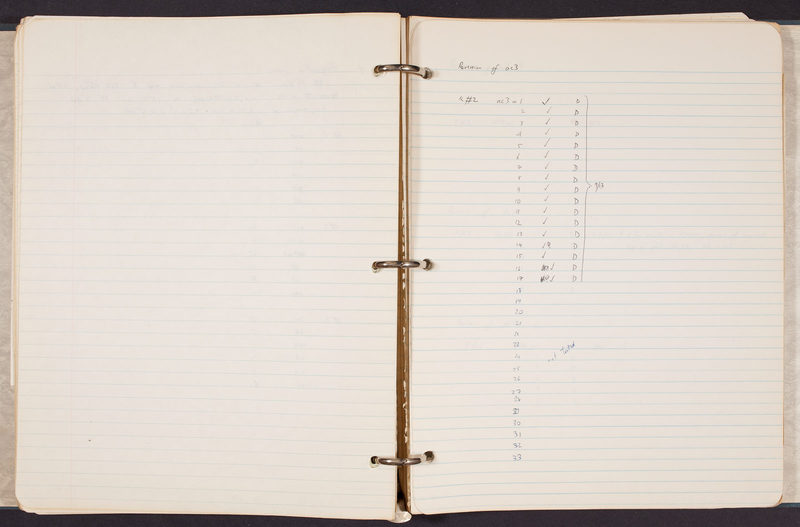 of nc3
#2 nc3 = 1 ✓ D
2 ✓ D
3 ✓ D
4 ✓ D
5 ✓ D
6 ✓ D
7 ✓ D
8 ✓ D
9 ✓ D
10 ✓ D
11 ✓ D
12 ✓ D
13 ✓ D
14 ✓ D
15 ✓ D
16 ✓ D
17 ✓ D
18
19
20
21
23
24
not tested
25
26
27
28
30
31
32
33